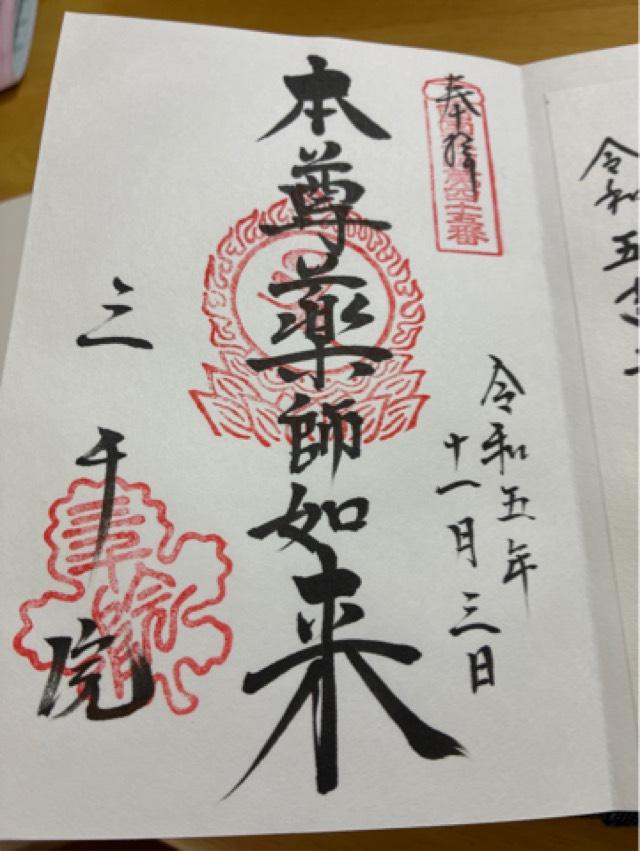 奉拝
令和五年
十一月三日
本尊薬師如来
三千院
令和五年